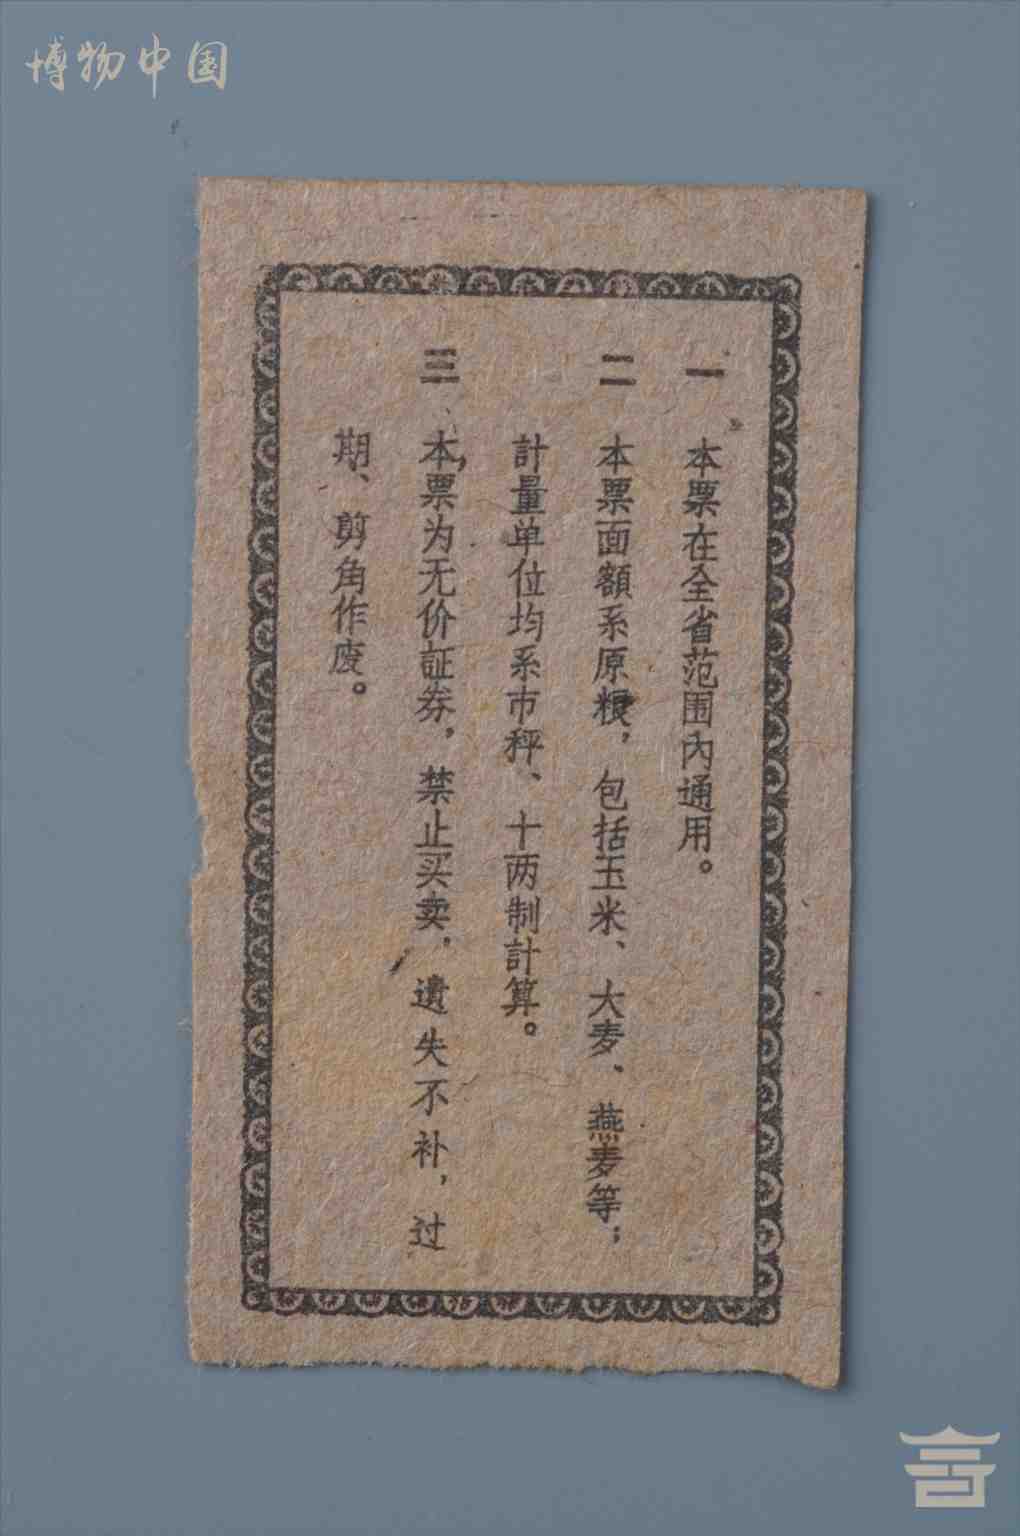 博物中国
一 本票在全省范围內通用。
二 本票面額系原粮，包括玉米、大麦、燕麦等；
計量单位均系市秤、十两制計算。
三 本票为无价証券，禁止买卖，遺失不补，过
期、剪角作废。